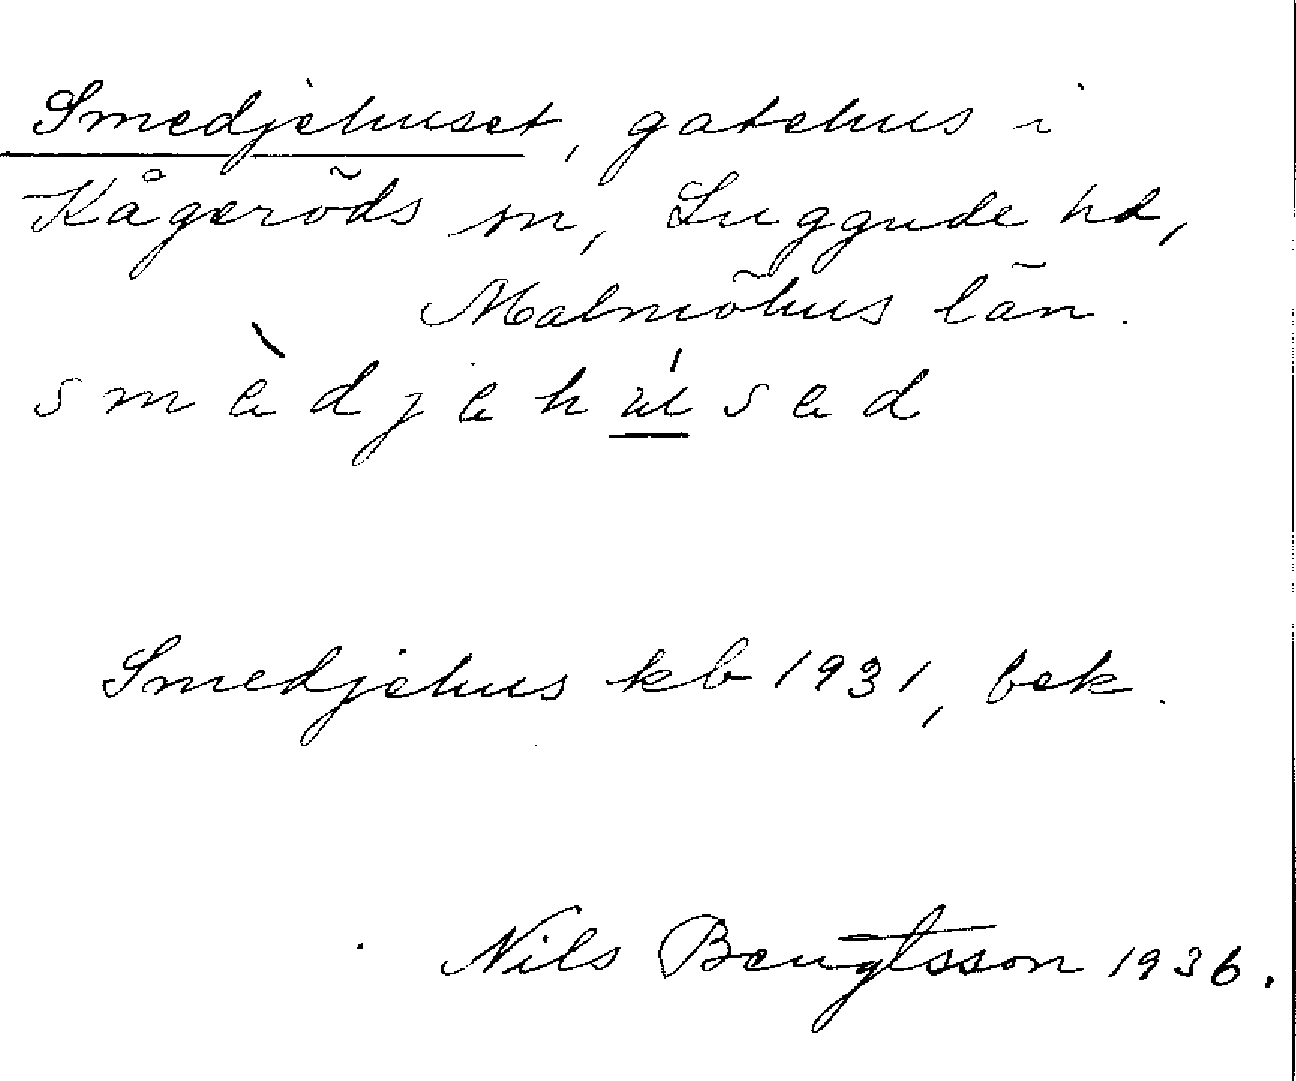 Smedjehuset, gatehus i
Kågeröds sn, Luggude hd,
Malmöhus län.
smèdjehúsed
Smedjehus kb 1931, bek.
Nils Bengtsson 1936.